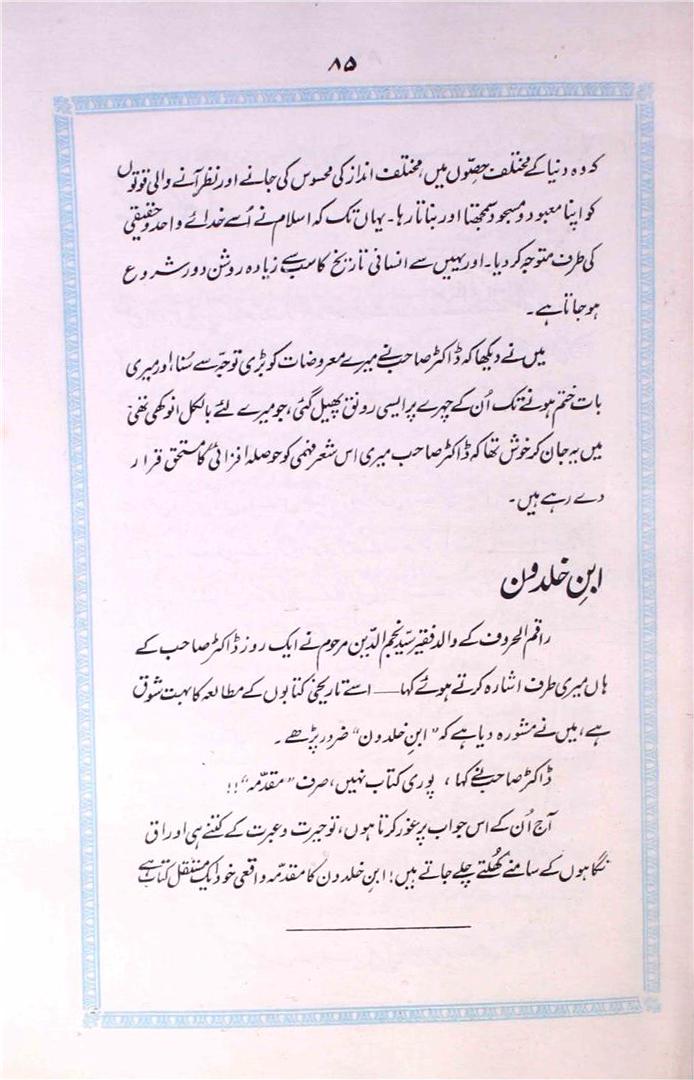 ۸۵
کہ وہ دنیا کے مختلف حصّوں میں، مختلف انداز کی محسوس کی جانے اور نظر آنے والی قوتوں
کو اپنا معبود و مسجود سمجھتا اور بناتا رہا۔ یہاں تک کہ اسلام نے اُسے خدائے واحد و حقیقی
کی طرف متوجہ کر دیا۔ اور یہیں سے انسانی تاریخ کا سب سے زیادہ روشن دور شروع
ہو جاتا ہے۔
میں نے دیکھا کہ ڈاکٹر صاحب نے میرے معروضات کو بڑی توجہ سے سُنا، اور میری
بات ختم ہونے تک اُن کے چہرے پر ایسی رونق پھیل گئی، جو میرے لئے بالکل انوکھی تھی
میں یہ جان کر خوش تھا کہ ڈاکٹر صاحب میری اس شعر فہمی کو حوصلہ افزائی کا مستحق قرار
دے رہے ہیں۔
ابنِ خلدون
راقم الحروف کے والد فقیر سیّد نجم الدّین مرحوم نے ایک روز ڈاکٹر صاحب کے
ہاں میری طرف اشارہ کرتے ہوئے کہا — اسے تاریخی کتابوں کے مطالعہ کا بہت شوق
ہے، میں نے مشورہ دیا ہے کہ "ابنِ خلدون" ضرور پڑھے۔
ڈاکٹر صاحب نے کہا، پوری کتاب نہیں، صرف "مقدّمہ"!!
آج اُن کے اس جواب پر غور کرتا ہوں، تو حیرت و عبرت کے کتنے ہی اوراق
نگاہوں کے سامنے کھُلتے چلے جاتے ہیں! ابنِ خلدون کا مقدّمہ واقعی خود ایک مستقل کتاب ہے